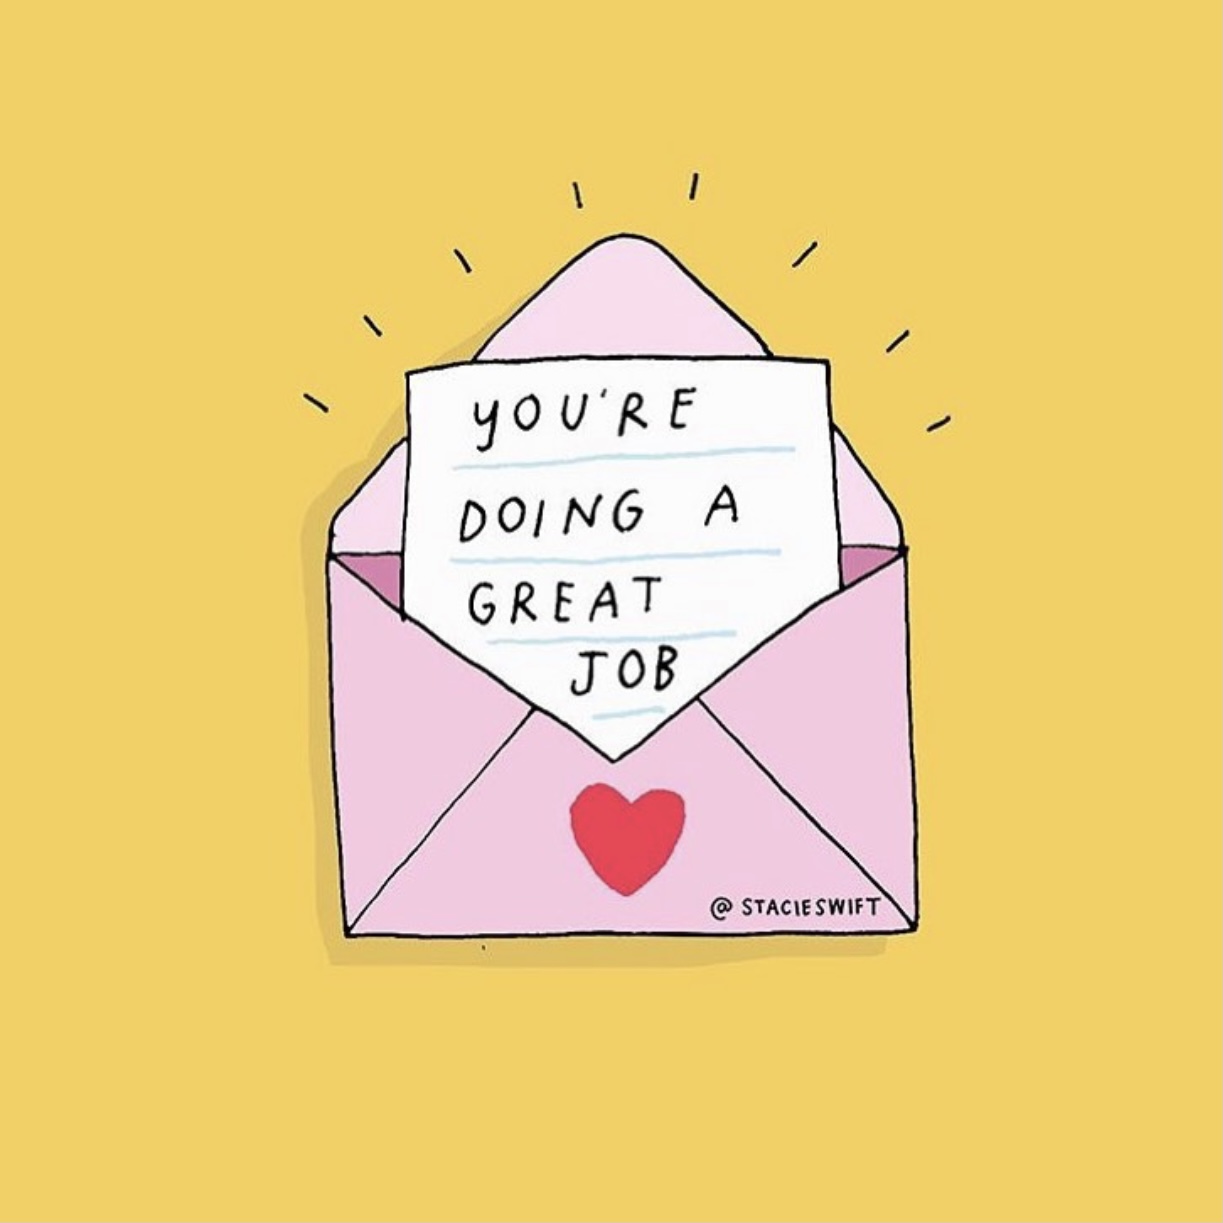 YOU'RE
DOING A
GREAT
JOB
@STACIESWIFT